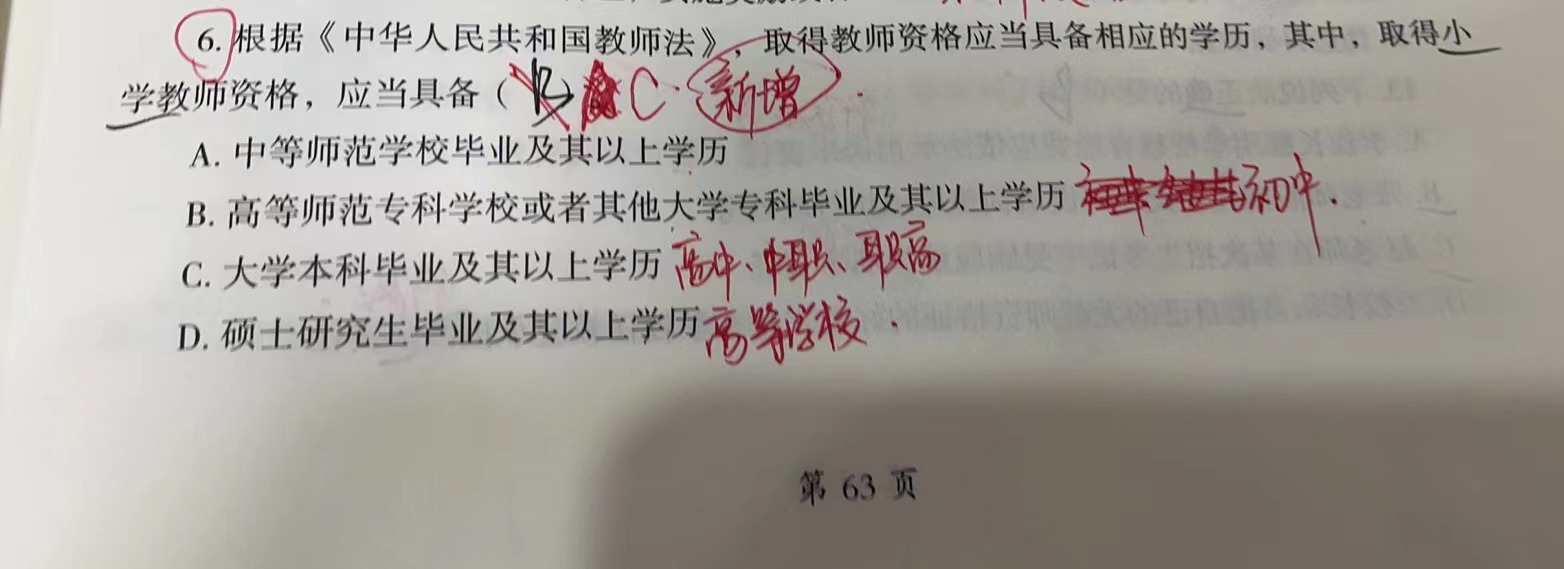 6. 根据《中华人民共和国教师法》，取得教师资格应当具备相应的学历，其中，取得小
学教师资格，应当具备（ B C. 新增
A. 中等师范学校毕业及其以上学历
B. 高等师范专科学校或者其他大学专科毕业及其以上学历 初中.
C. 大学本科毕业及其以上学历 高中、中职、职高
D. 硕士研究生毕业及其以上学历 高等学校.
第 63 页